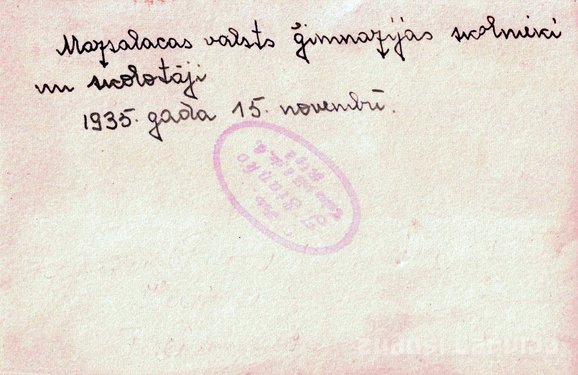 Mazsalacas valsts ģimnazijas skolnieki
un skolotāji
1935. gada 15. novembrī.